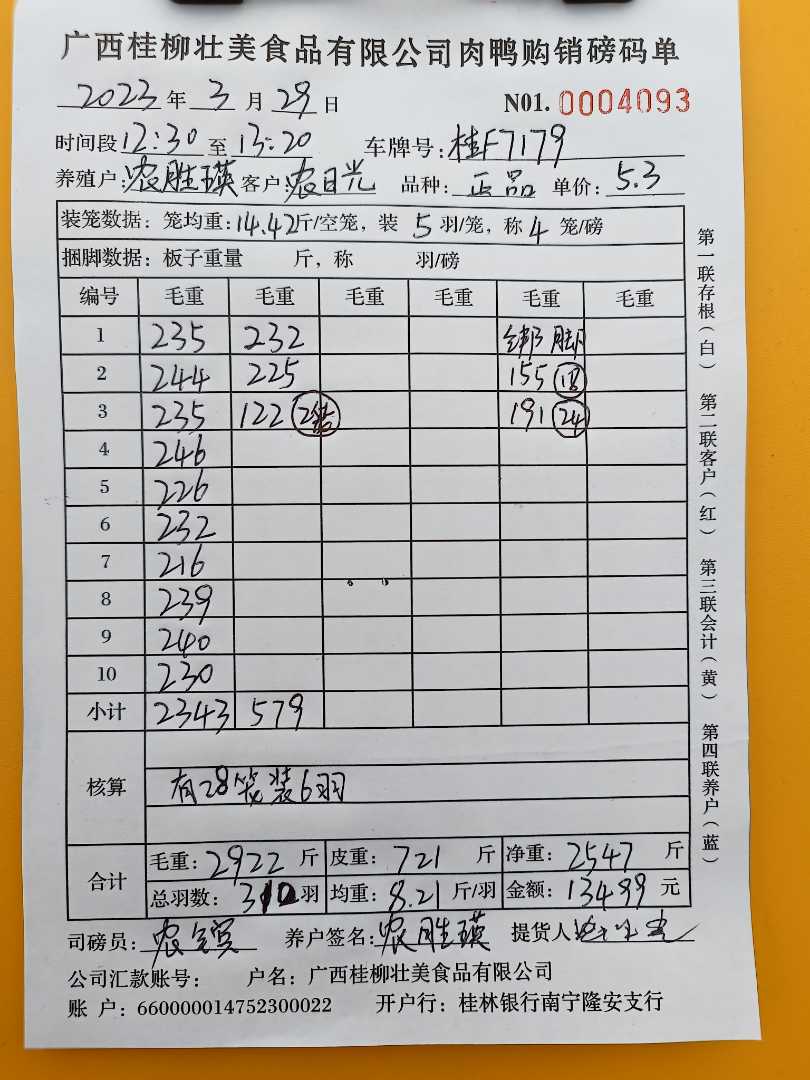 广西桂柳壮美食品有限公司肉鸭购销磅码单
2023 年 3 月 29 日 N01. 0004093
时间段 12:30 至 13:20 车牌号: 桂F7179
养殖户: 农胜瑛 客户: 农日光 品种: 正品 单价: 5.3
装笼数据: 笼均重: 14.42 斤/空笼, 装 5 羽/笼, 称 4 笼/磅
捆脚数据: 板子重量 斤, 称 羽/磅
编号 毛重 毛重 毛重 毛重 毛重 毛重
1 235 232 绑脚
2 244 225 155 18
3 235 122 2笼 191 24
4 246
5 226
6 232
7 216
8 239
9 240
10 230
小计 2343 579
核算 有28笼装6羽
合计 毛重: 2922 斤 皮重: 721 斤 净重: 2547 斤
总羽数: 310 羽 均重: 8.21 斤/羽 金额: 13499 元
司磅员: 农 养户签名: 农胜瑛 提货人
公司汇款账号: 户名: 广西桂柳壮美食品有限公司
账 户: 660000014752300022 开户行: 桂林银行南宁隆安支行
第一联存根(白) 第二联客户(红) 第三联会计(黄) 第四联养户(蓝)